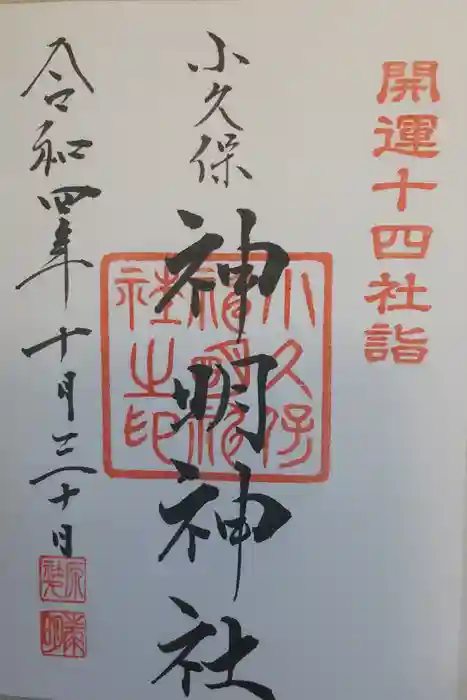 開運十四社詣
小久保
神明神社
小久保神明神社之印
令和四年十月三十日